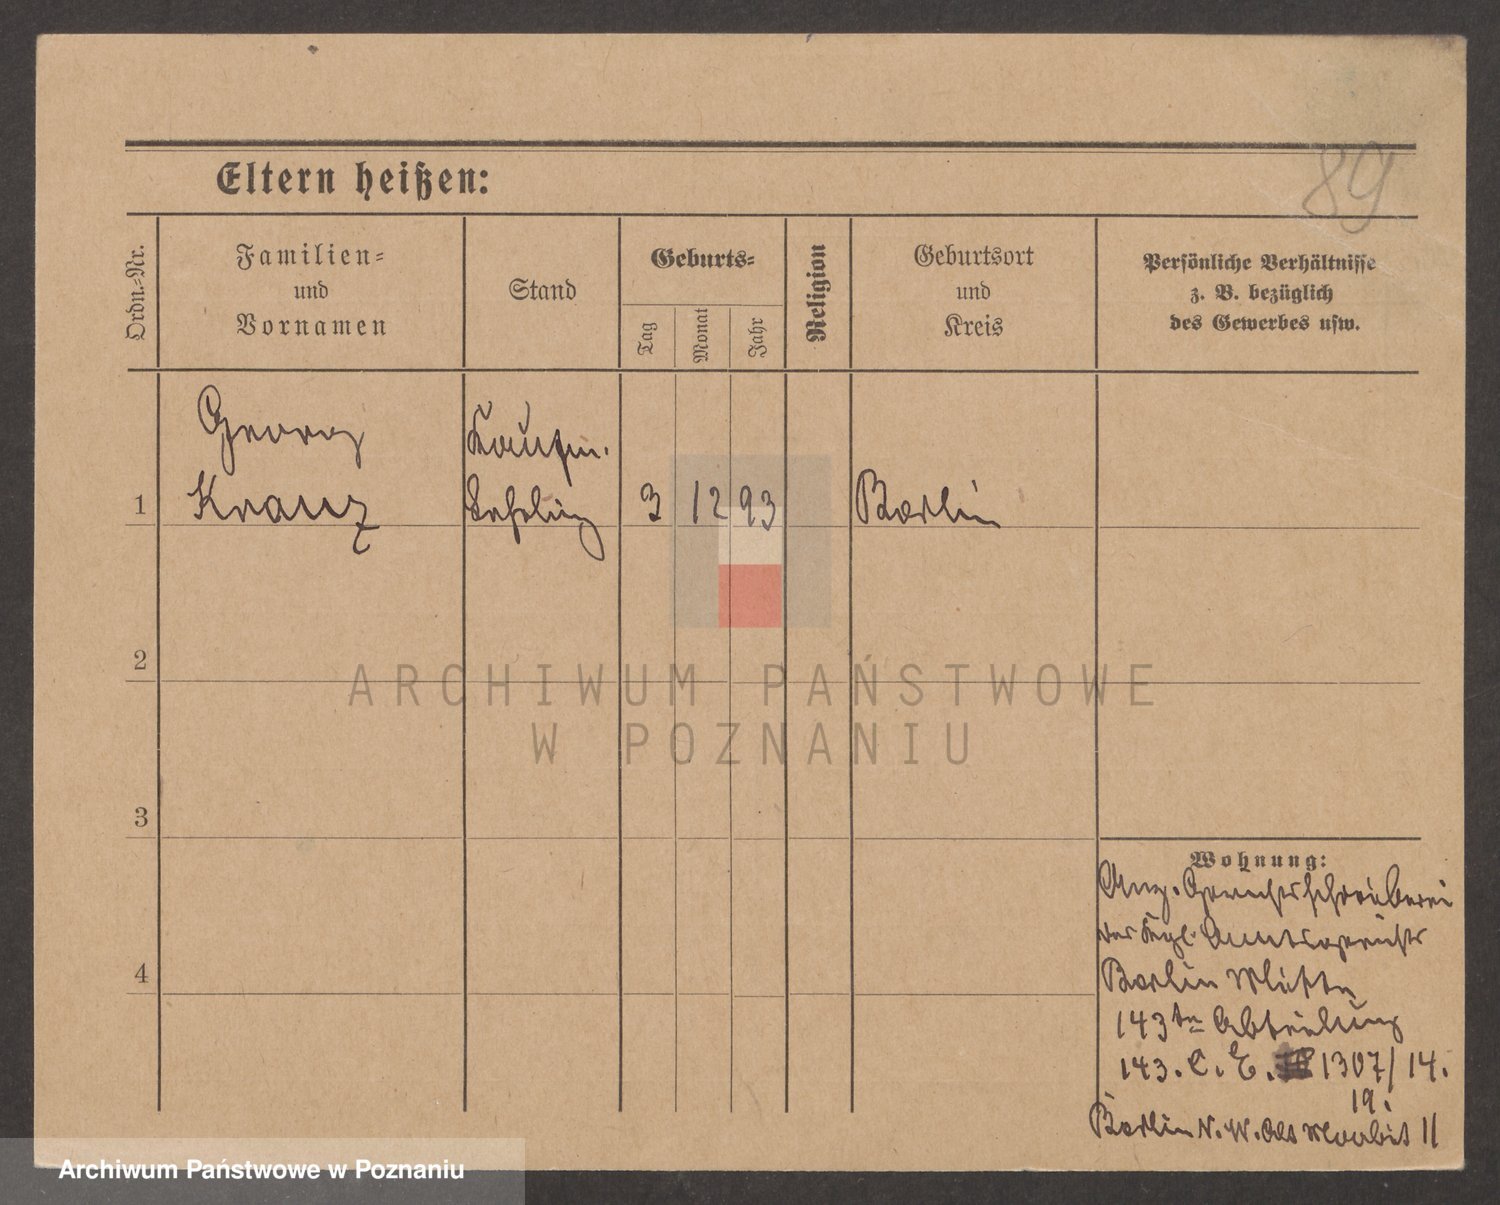 89
Eltern heißen:
Ordn.-Nr.
Familien-
und
Vornamen
Stand
Geburts-
Tag
Monat
Jahr
Religion
Geburtsort
und
Kreis
Persönliche Verhältnisse
z. B. bezüglich
des Gewerbes usw.
Georg
Kranz
Kaufm.
Lehrling
1
3
12
93
Berlin
2
ARCHIWUM PAŃSTWOWE
W POZNANIU
3
Wohnung:
Anz. Gerichtsschreiberei
des Kgl. Amtsgerichts
Berlin Mitte
143te Abteilung
143. C. E. 1307/14.
19.
Berlin N.W. Alt Moabit 11
4
Archiwum Państwowe w Poznaniu